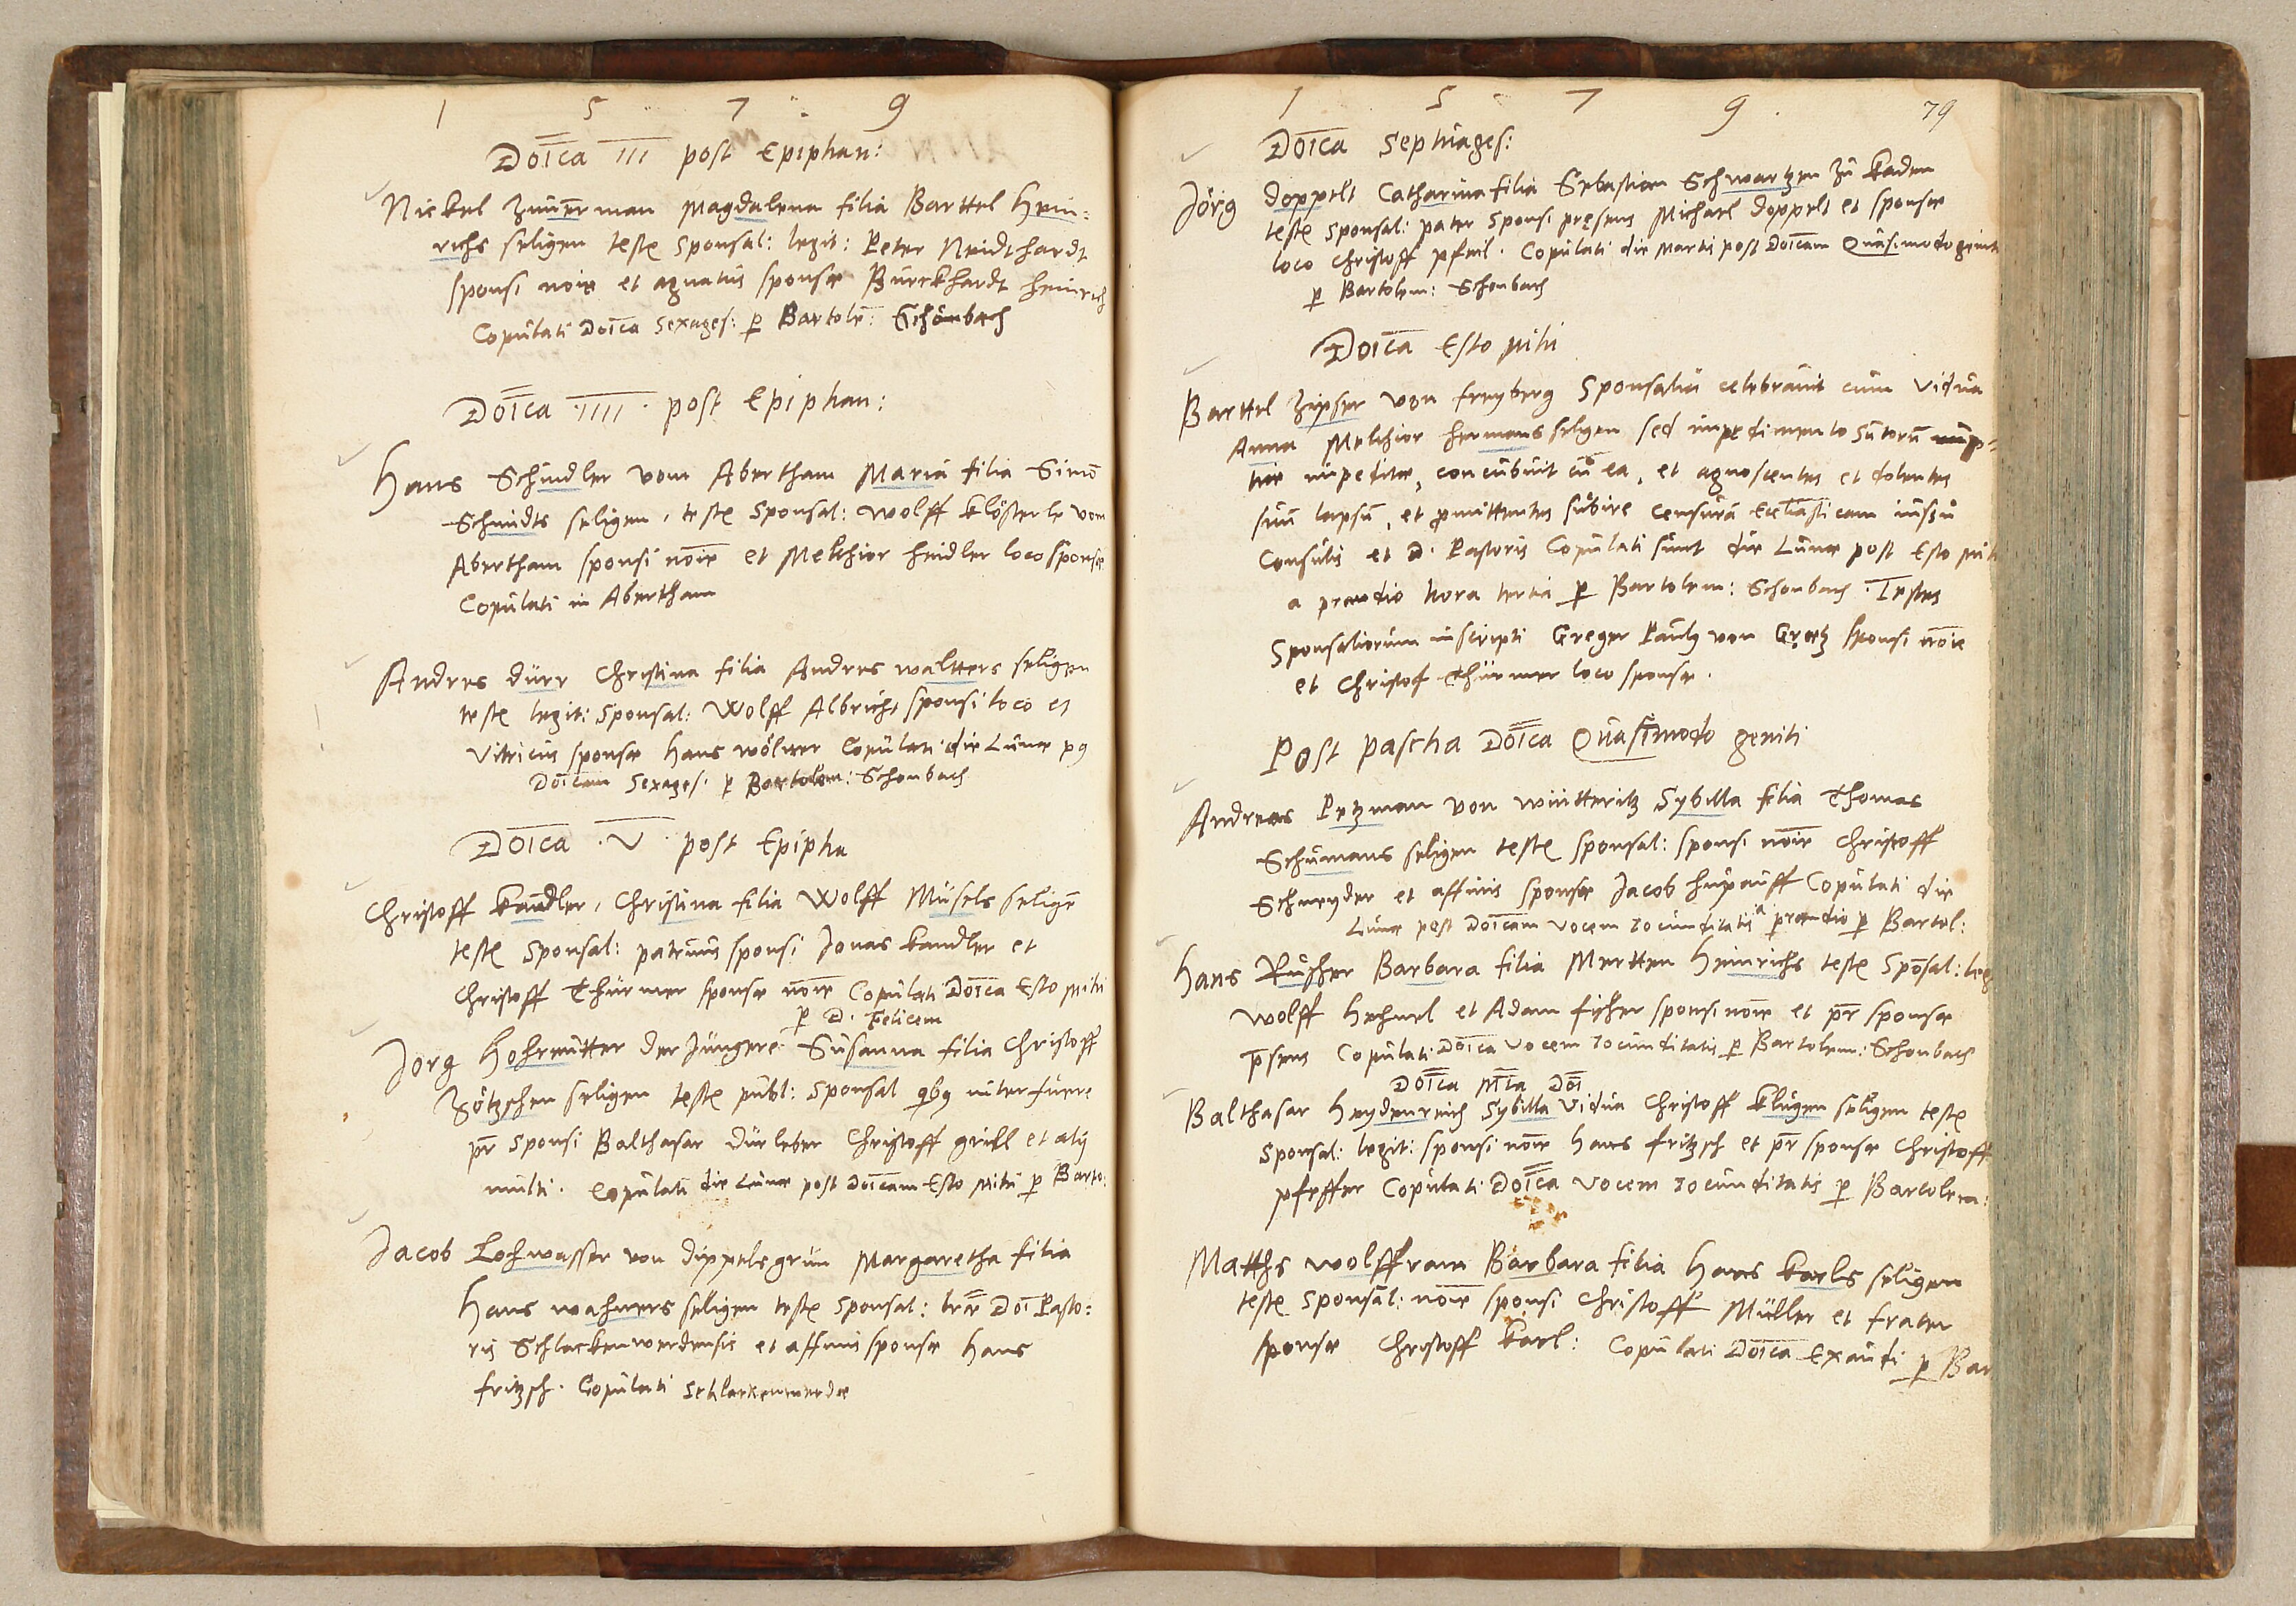 1 5 7 9
Doīca III post Epiphan:
Nickel Zim̄erman Magdalena filia Barttel Hein:
richs seligen testes sponsal: legit: Peter Neidthardt
sponsi noīe et agnatus sponsæ Burckhardt Heinrich
Copulati Doīca Sexages: p Bartole: Schönbach
Doīca IIII post Epiphan:
Hans Schindler vom Abertham Maria filia Simō
Schmidts seligen, testes Sponsal: Wolff Klösterle vom
Abertham sponsi noīe et Melchior Heidler loco sponsæ
Copulati in Abertham
Andres dürr Christina filia Andres waltters seligen
testes legit: Sponsal: Wolff Albrich, sponsi loco et
Vitricus sponsæ Hans wölner Copulati die Lunæ p9
Doīcam Sexages. p Bartolem: Schonbach
Doīca V post Epipha
Christoff Kandler, Christina filia Wolff Müsels seligē
testes Sponsal: patruus sponsi Jonas Kandler et
Christoff Thürmer sponsæ noīe Copulati Doīca Esto Mihi
p D. Felicem
Jorg Hohreutter der Jüngere Susanna filia Christoff
Zötzschen seligen testes publ: Sponsal qb9 interfuere
pr̄ Sponsi Balthasar Dürleber Christoff grickl et alij
multi. Copulati die Lunæ post Doīcam Esto Mihi p Barto:
Jacob Lohwasser von dippelsgrün Margaretha filia
Hans wahners seligen testes Sponsal: lræ Doī Pasto:
ris Schlackenwerdensis et affinis sponsæ Hans
fritzsch. Copulati Schlackenwerdæ
1 5 7 9
79
Doīca Septuages:
Jörg doppelt Catharina filia Sebastian Schwartzen zu Kaden
testes Sponsal: pater Sponsi pręsens Michael doppelt et sponsæ
loco Christoff pfeil. Copulati die Martis post Doīcam Quasimodogenit
p Bartolem: Schonbach
Doīca Esto mihi
Barttel Zipser von Freyberg Sponsalia celebrauit cum Vidua
Anna Melchior Hermans seligen sed impedimento sutorū nup=
tiæ impeditæ, concubuit cū ea, et agnoscentes et dolentes
suū lapsū, et promittentes subire censurā Eccl̄iasticam iussu
Consulis et D. Pastoris Copulati sunt die Lunæ post Esto mih
a prandio hora tertia p Bartolem: Schonbach. Testes
Sponsaliorum inscripti Greger Paulz von Grętz sponsi noīe
et Christof Thürmer loco sponsæ.
Post Pascha Doīca Quasimodo geniti
Andreas Petzman von wintteritz Sybilla filia Thomas
Schumans seligen testes sponsal: sponsi noīe Christoff
Schneyder et affinis sponsæ Jacob Hupauff Copulati die
Lunæ post Doīcam Vocem Jocunditatis a prandio p Bartol:
Hans Ruscher Barbara filia Mertten Heinrichs testes Sposal: leg
Wolff Hehnel et Adam fischer sponsi noīe et pr̄ sponsæ
p̄sens Copulati Doīca Vocem Jocunditatis p Bartolem: Schonbach
Doīca Mīa Doī
Balthasar Heydenreich Sybilla Vidua Christoff Klugen seligen testes
Sponsal: legit: sponsi noīe Hans fritzsch et pr̄ sponsæ Christoff
pfeffer Copulati Doīca Vocem Jocunditatis p Bartolem:
Matths Wolffram Barbara filia Hans Karls seligen
testes Sponsal: noīe sponsi Christoff Müller et frater
sponsæ Christoff Karl: Copulati Doīca Exaudi p Bar